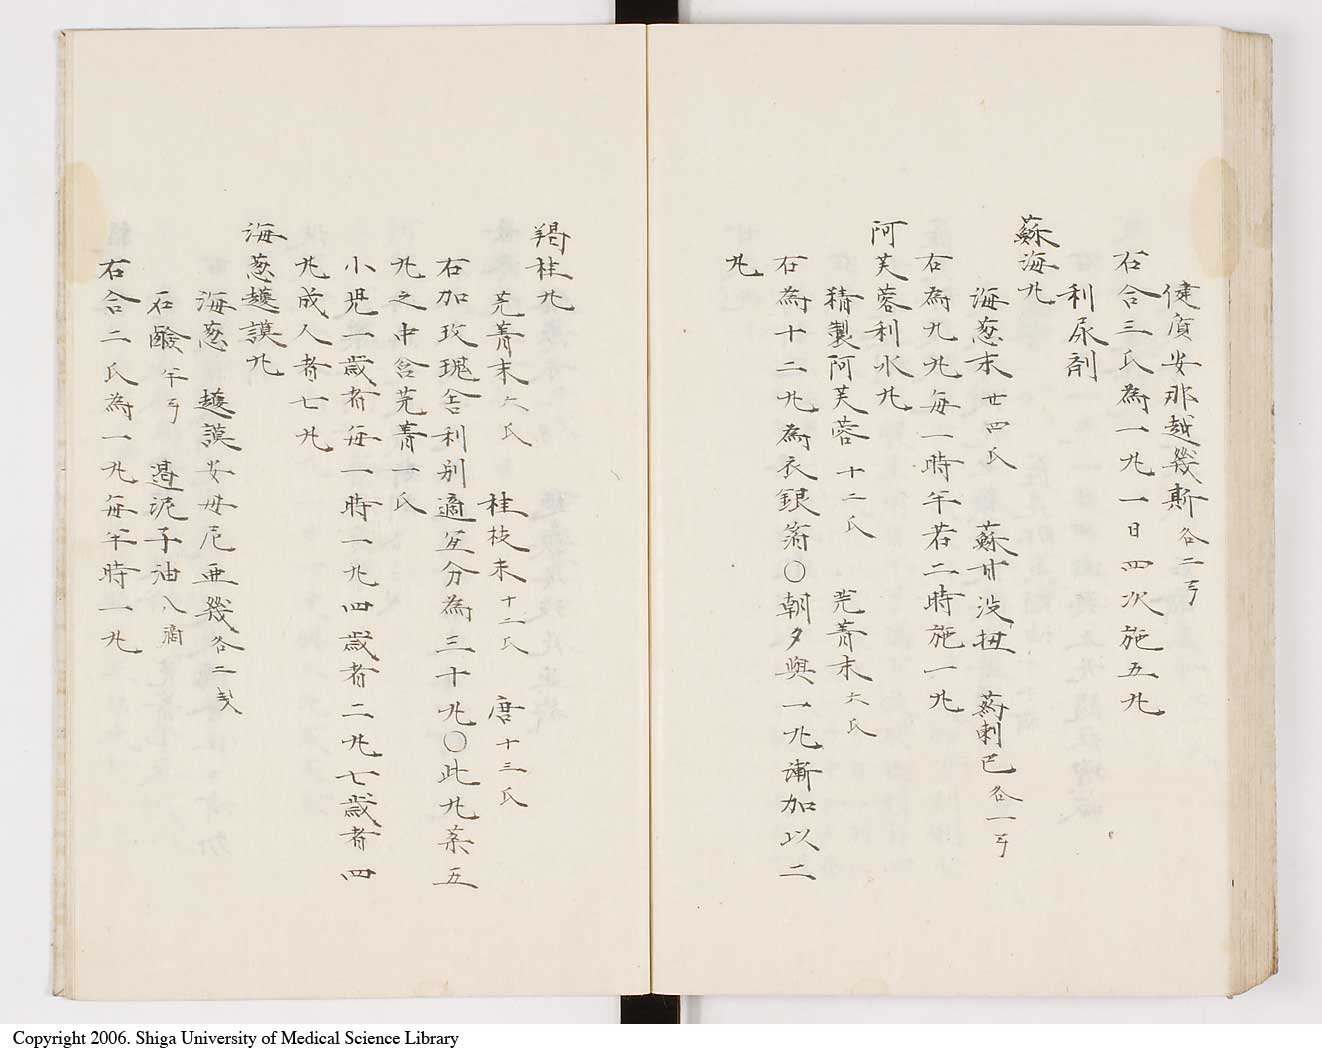 健質安那越幾斯 各二㦮
右合三氏為一丸一日四次施五丸
利尿剤
蘇海丸
海葱末 廿四氏 蘇甘没扭 葯剌巴 各一㦮
右為丸丸毎一時半若二時施一丸
阿芙蓉利水丸
精製阿芙蓉 十二氏 芫菁末 六氏
右為十二丸為衣銀箔〇朝夕與一丸漸加以二
丸
羯桂丸
芫菁末 六氏 桂枝末 十二氏 唐 十三氏
右加玫瑰舎利別適宜分為三十丸〇此丸薬五
丸之中含芫菁一氏
小児二歳者毎一時一丸四歳者二丸七歳者四
丸成人者七丸
海葱護謨丸
海葱 護謨安母尼亜幾 各二
石鹸 半 泥子油 八滴
右合二氏為一丸毎半時一丸
Copyright 2006. Shiga University of Medical Science Library